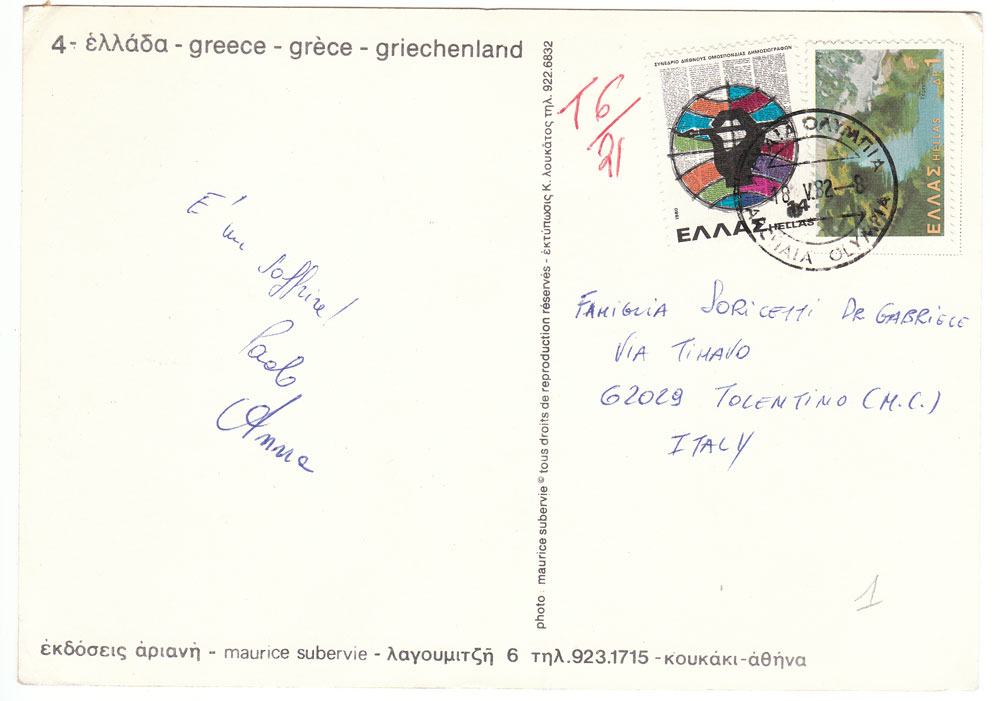 4- ἑλλάδα - greece - grèce - griechenland
E' un soffrire!
Paolo
Anna
photo : maurice subervie © tous droits de reproduction réservés - ἐκτύπωσις Κ. λουκάτος τηλ. 922.6832
T 6/21
ΣΥΝΕΔΡΙΟ ΔΙΕΘΝΟΥΣ ΟΜΟΣΠΟΝΔΙΑΣ ΔΗΜΟΣΙΟΓΡΑΦΩΝ
1980
14
ΕΛΛΑΣ HELLAS
ΔΡ. 1
ΕΛΛΑΣ HELLAS
ΑΙΑ ΟΛΥΜΠΙΑ
18 V.82-8
ARCHAIA OLYMPIA
FAMIGLIA SORICETTI DR GABRIELE
VIA TIMAVO
62029 TOLENTINO (M.C.)
ITALY
1
ἐκδόσεις ἀριανή - maurice subervie - λαγουμιτζῆ 6 τηλ.923.1715 - κουκάκι-ἀθήνα